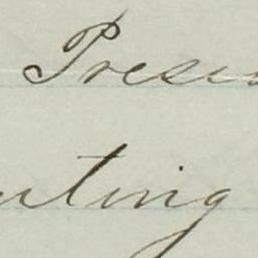 Prese
uting